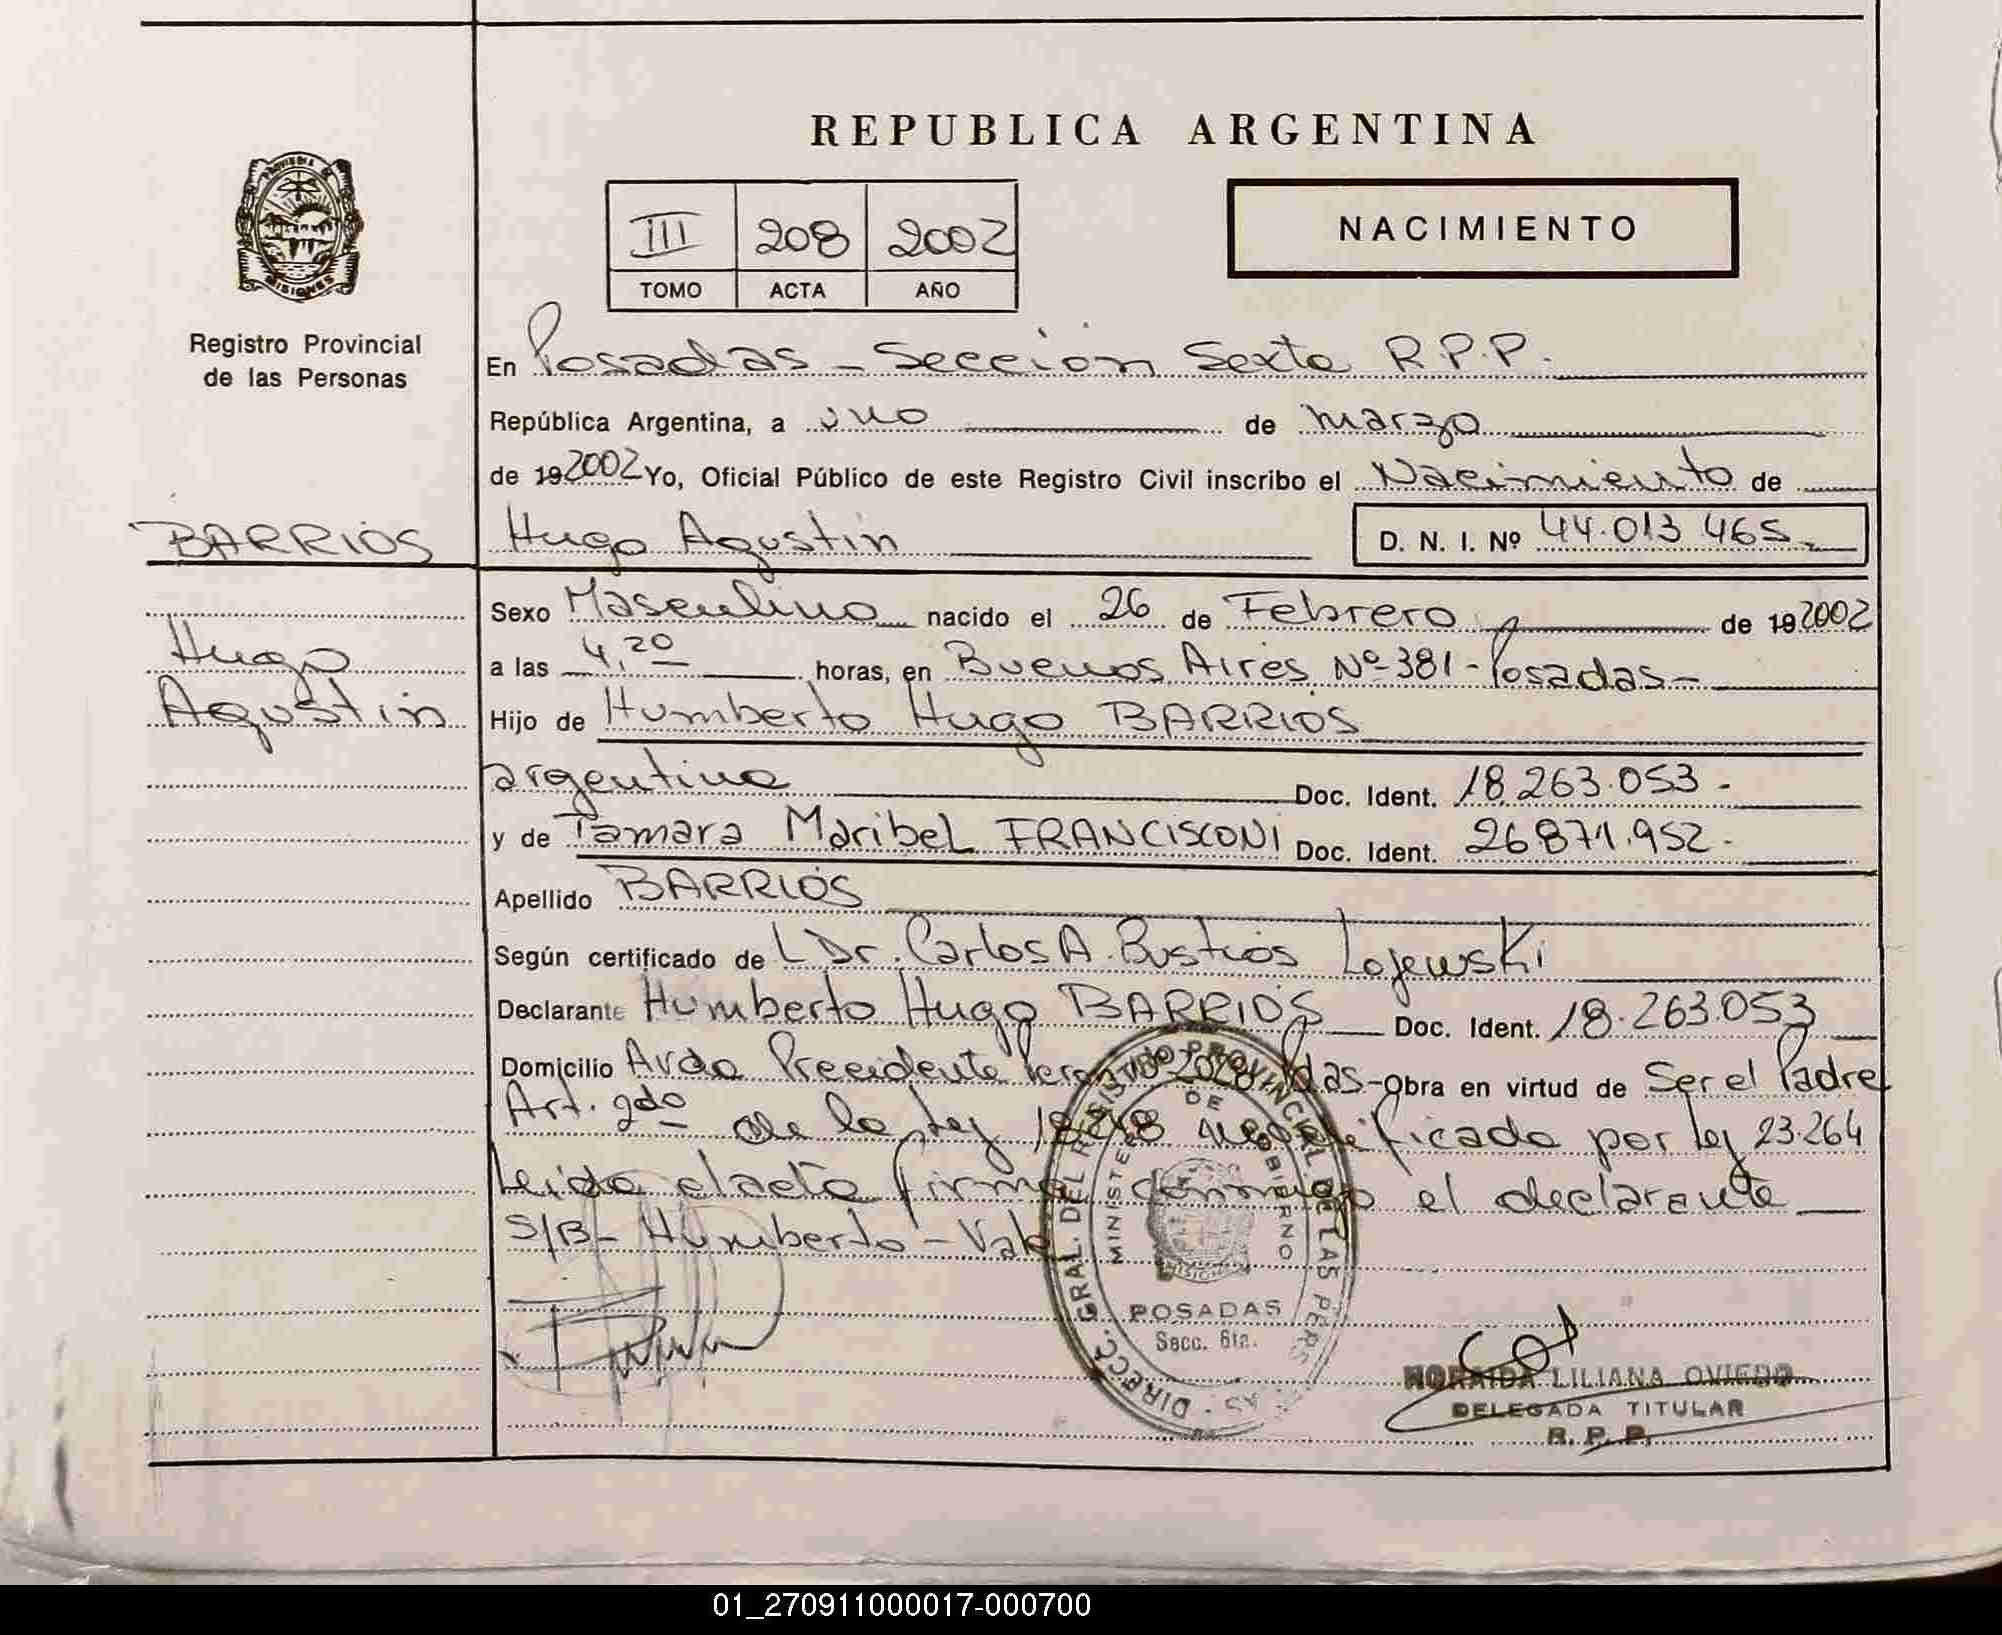 REPUBLICA ARGENTINA
PROVINCIA DE
MISIONES
Registro Provincial
de las Personas
III 208 2002
TOMO ACTA AÑO
NACIMIENTO
En Posadas - Seccion Sexta R.P.P.
República Argentina, a uno de marzo
de 19 2002 Yo, Oficial Público de este Registro Civil inscribo el Nacimiento de
BARRIOS
Hugo Agustin D. N. I. Nº 44.013 465
Hugo
Agustin
Sexo Masculino nacido el 26 de Febrero de 19 2002
a las 4,20 horas, en Buenos Aires Nº 381 - Posadas -
Hijo de Humberto Hugo BARRIOS
argentino Doc. Ident. 18.263.053 -
y de Tamara Maribel FRANCISCONI Doc. Ident. 26871.952 -
Apellido BARRIOS
Según certificado de L Dr. Carlos A. Bustios Lojewski
Declarante Humberto Hugo BARRIOS Doc. Ident. 18.263.053
Domicilio Avda Presidente Peron Nº 2028 Pdas - Obra en virtud de Ser el Padre
Art. 2do de la Ley 18248 modificado por ley 23.264
Leida el acta firma conmigo el declarante
S/B - Humberto - Vale
DIRECC. GRAL. DEL REGISTRO PROVINCIAL DE LAS PERSONAS
MINISTERIO DE GOBIERNO
MISIONES
POSADAS
Secc. 6ta.
NORAIDA LILIANA OVIEDO
DELEGADA TITULAR
R. P. P.
01_270911000017-000700